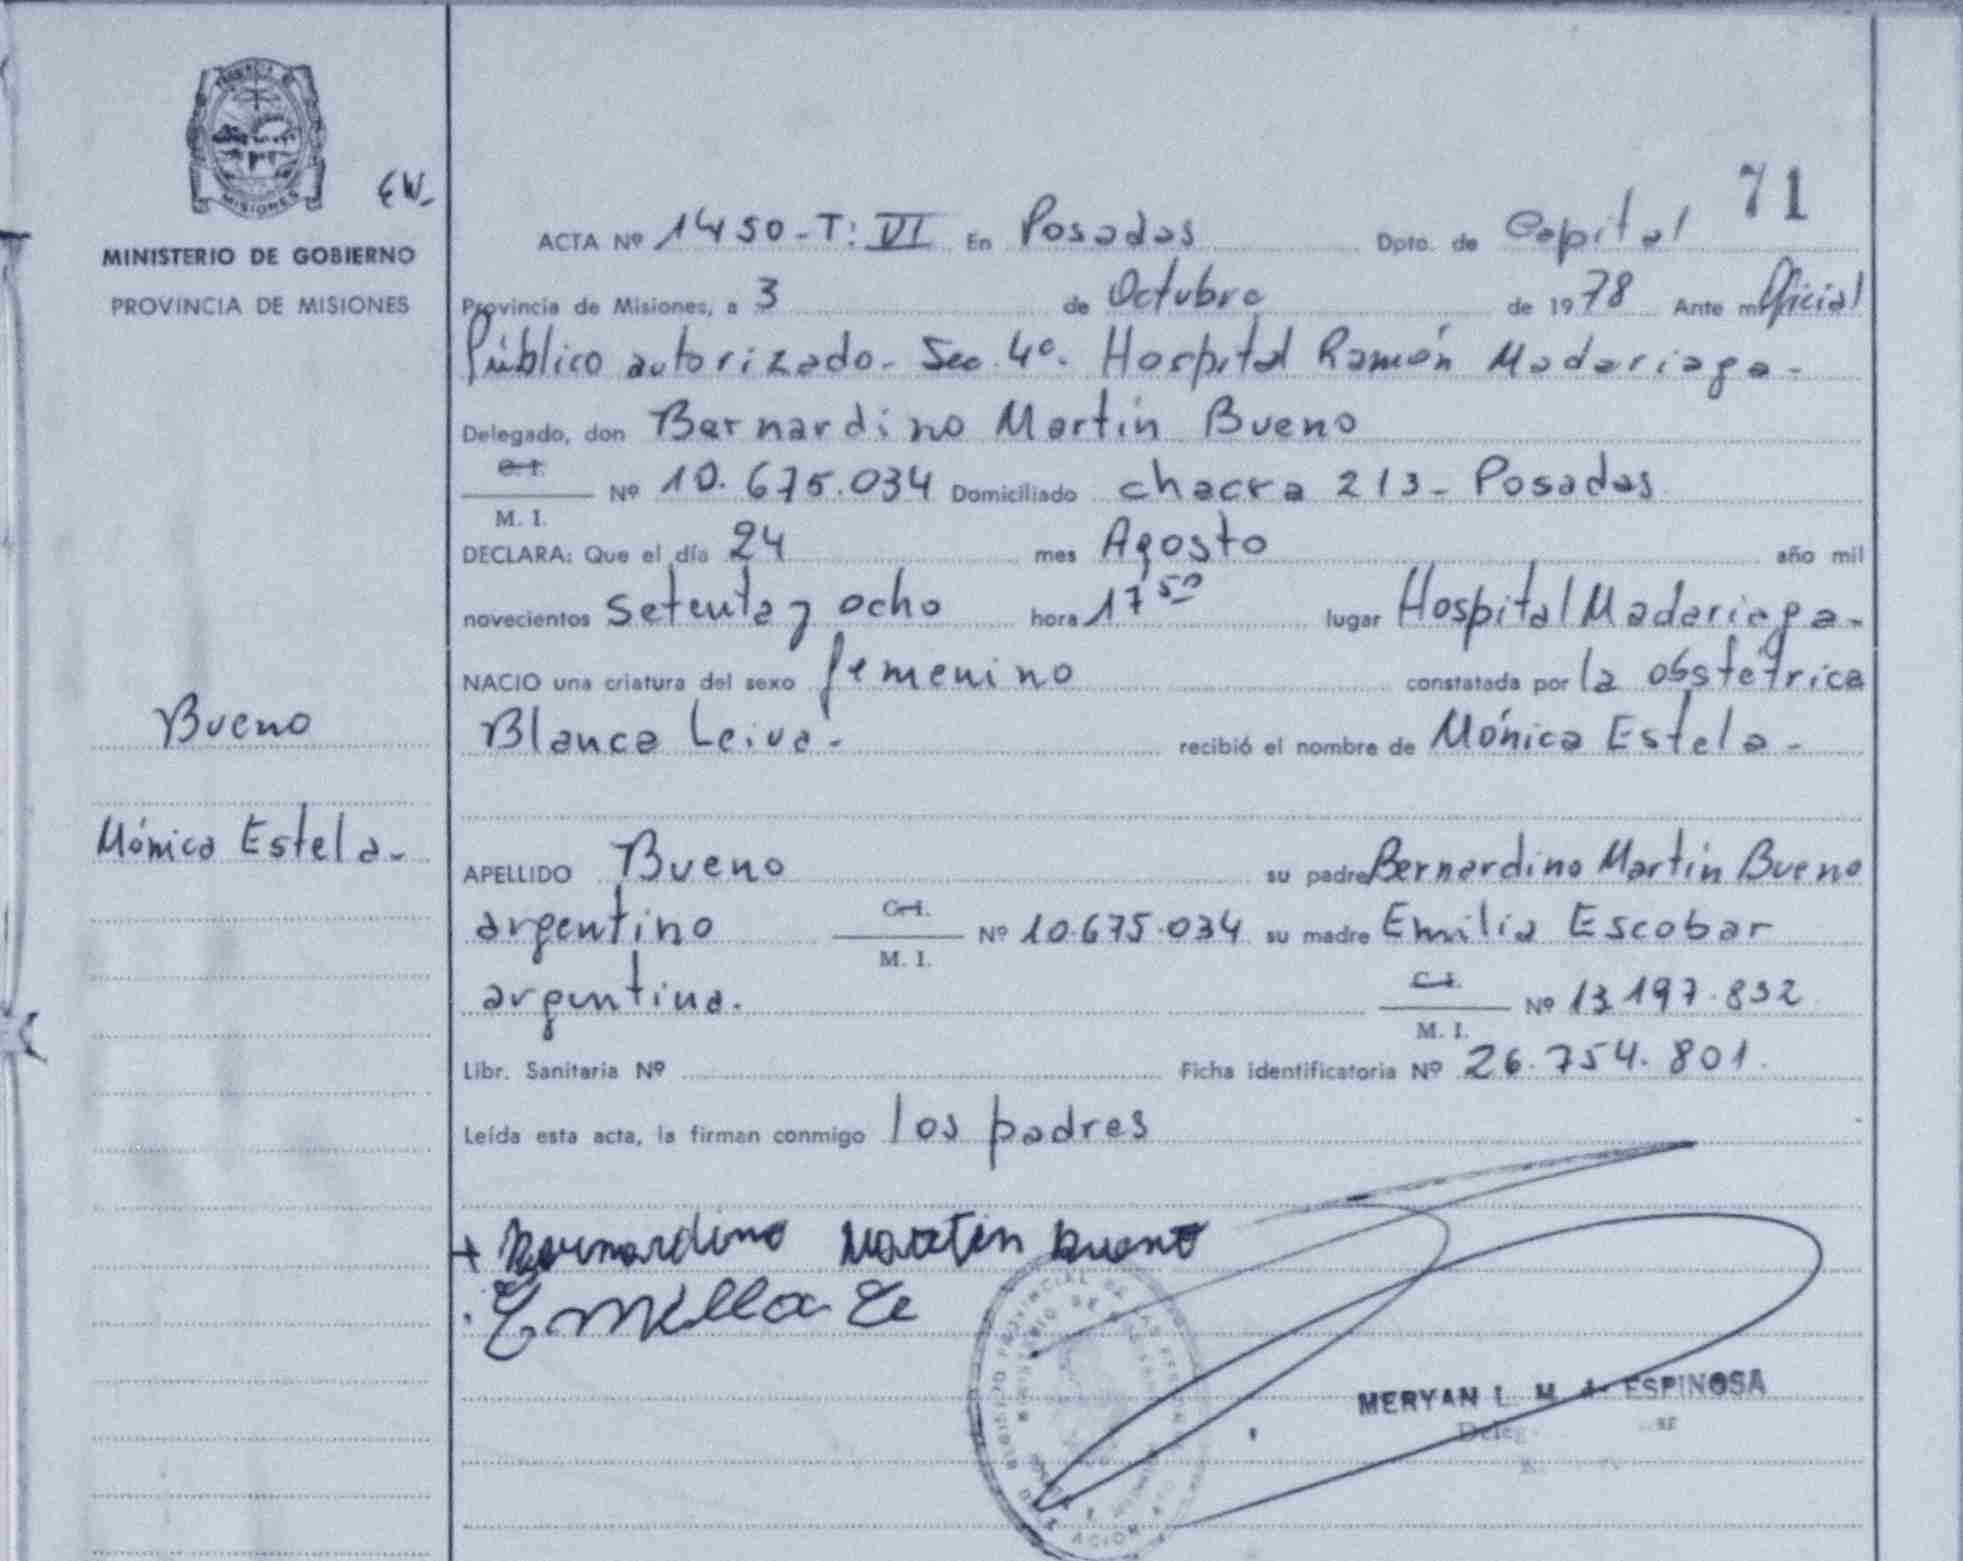 PROVINCIA DE
MISIONES
MINISTERIO DE GOBIERNO
PROVINCIA DE MISIONES
EW-
71
ACTA Nº 1450-T: VI En Posadas Dpto. de Capital
Provincia de Misiones, a 3 de Octubre de 1978 Ante mi Oficial
Público autorizado- Sec. 4º. Hospital Ramón Madariaga-
Delegado, don Bernardino Martín Bueno
C. I.
M. I.
Nº 10.675.034 Domiciliado chacra 213- Posadas
DECLARA: Que el día 24 mes Agosto año mil
novecientos setenta y ocho hora 17 50 lugar Hospital Madariaga-
NACIO una criatura del sexo femenino constatada por la obstétrica
Blanca Leiva- recibió el nombre de Mónica Estela-
Bueno
Mónica Estela-
APELLIDO Bueno su padre Bernardino Martín Bueno
argentino C. I. M. I. Nº 10.675.034 su madre Emilia Escobar
argentina. C. I. M. I. Nº 13.197.832
Libr. Sanitaria Nº Ficha identificatoria Nº 26.754.801.
Leída esta acta, la firman conmigo los padres
+ Bernardino Martín Bueno
Emilla Es
MERYAN L. M. ESPINOSA